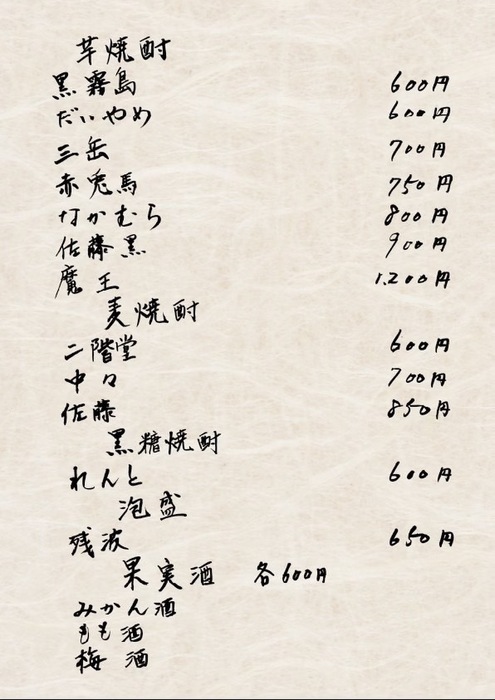 芋焼酎
黒霧島 600円
だいやめ 600円
三岳 700円
赤兎馬 750円
なかむら 800円
佐藤黒 900円
魔王 1.200円
麦焼酎
二階堂 600円
中々 700円
佐藤 850円
黒糖焼酎
れんと 600円
泡盛
残波 650円
果実酒 各600円
みかん酒
もも酒
梅酒